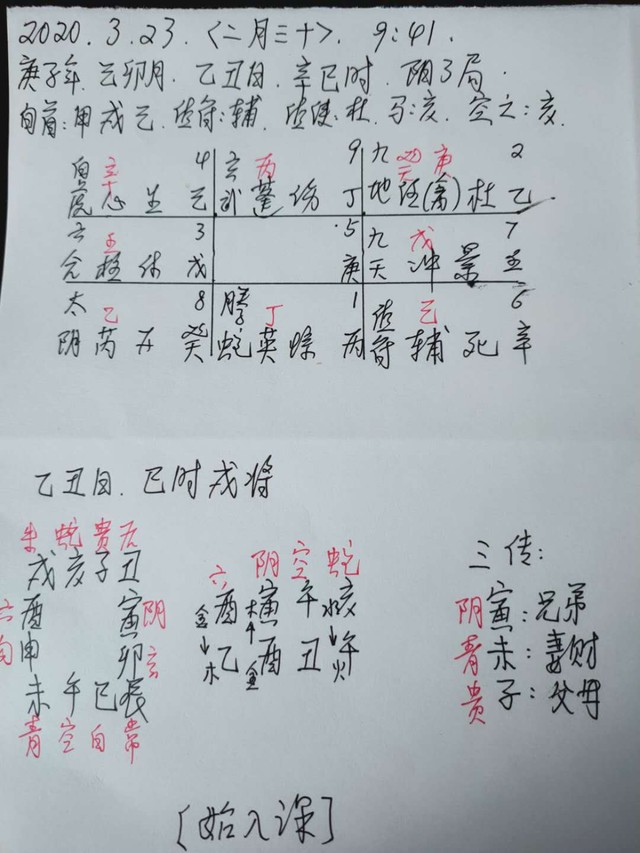 2020.3.23.<二月三十>. 9:41.
庚子年.己卯月.乙丑日.辛巳时.阴3局.
旬首:甲戌己.值符:辅.值使:杜.马:亥.空亡:亥.
白 辛 4 玄 丙 9 九 癸 庚 2
虎 心 生 己 武 蓬 伤 丁 地 任(禽)杜 乙
六 壬 3 5 九 戊 7
合 柱 休 戊 庚 天 冲 景 壬
太 乙 8 腾 丁 1 值 己 6
阴 芮 开 癸 蛇 英 惊 丙 符 辅 死 辛
乙丑日.巳时戌将
朱 蛇 贵 后
戌 亥 子 丑
六 酉 寅 阴
勾 申 卯 玄
未 午 巳 辰
青 空 白 常
六 阴 空 蛇
金 酉 木 寅 午 水 亥
↓ 木 乙 ↑ 金 酉 丑 ↓ 火 午
三传:
阴 寅:兄弟
青 未:妻财
贵 子:父母
[始入课]